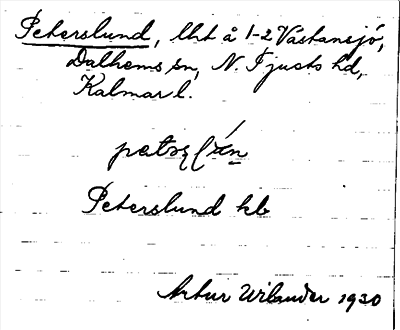 Peterslund, lht å 1-2 Västansjö,
Dalhems sn, N. Tjusts hd,
Kalmar l.
Peterslund kb
Artur Wilander 1930